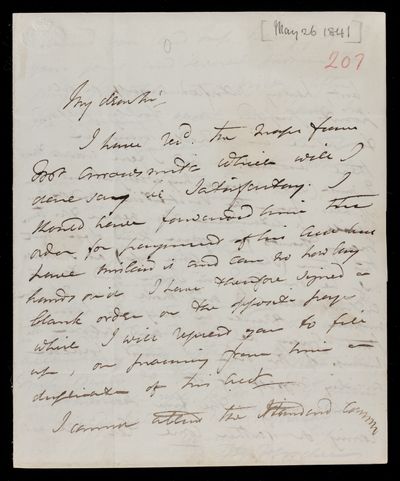 [May 26 1841]
207
My dear Sir,
I have rec.d the maps from
Arrowsmith which will I
dare say be satisfactory. I
should have forwarded him the
order for payment of his acct but
have mislaid it and can no how lay
hands on it I have therefore signed a
blank order on the opposite page
which I will request you to fill
up, on procuring from him a
duplicate of his acct
I cannot attend the Standard Comm